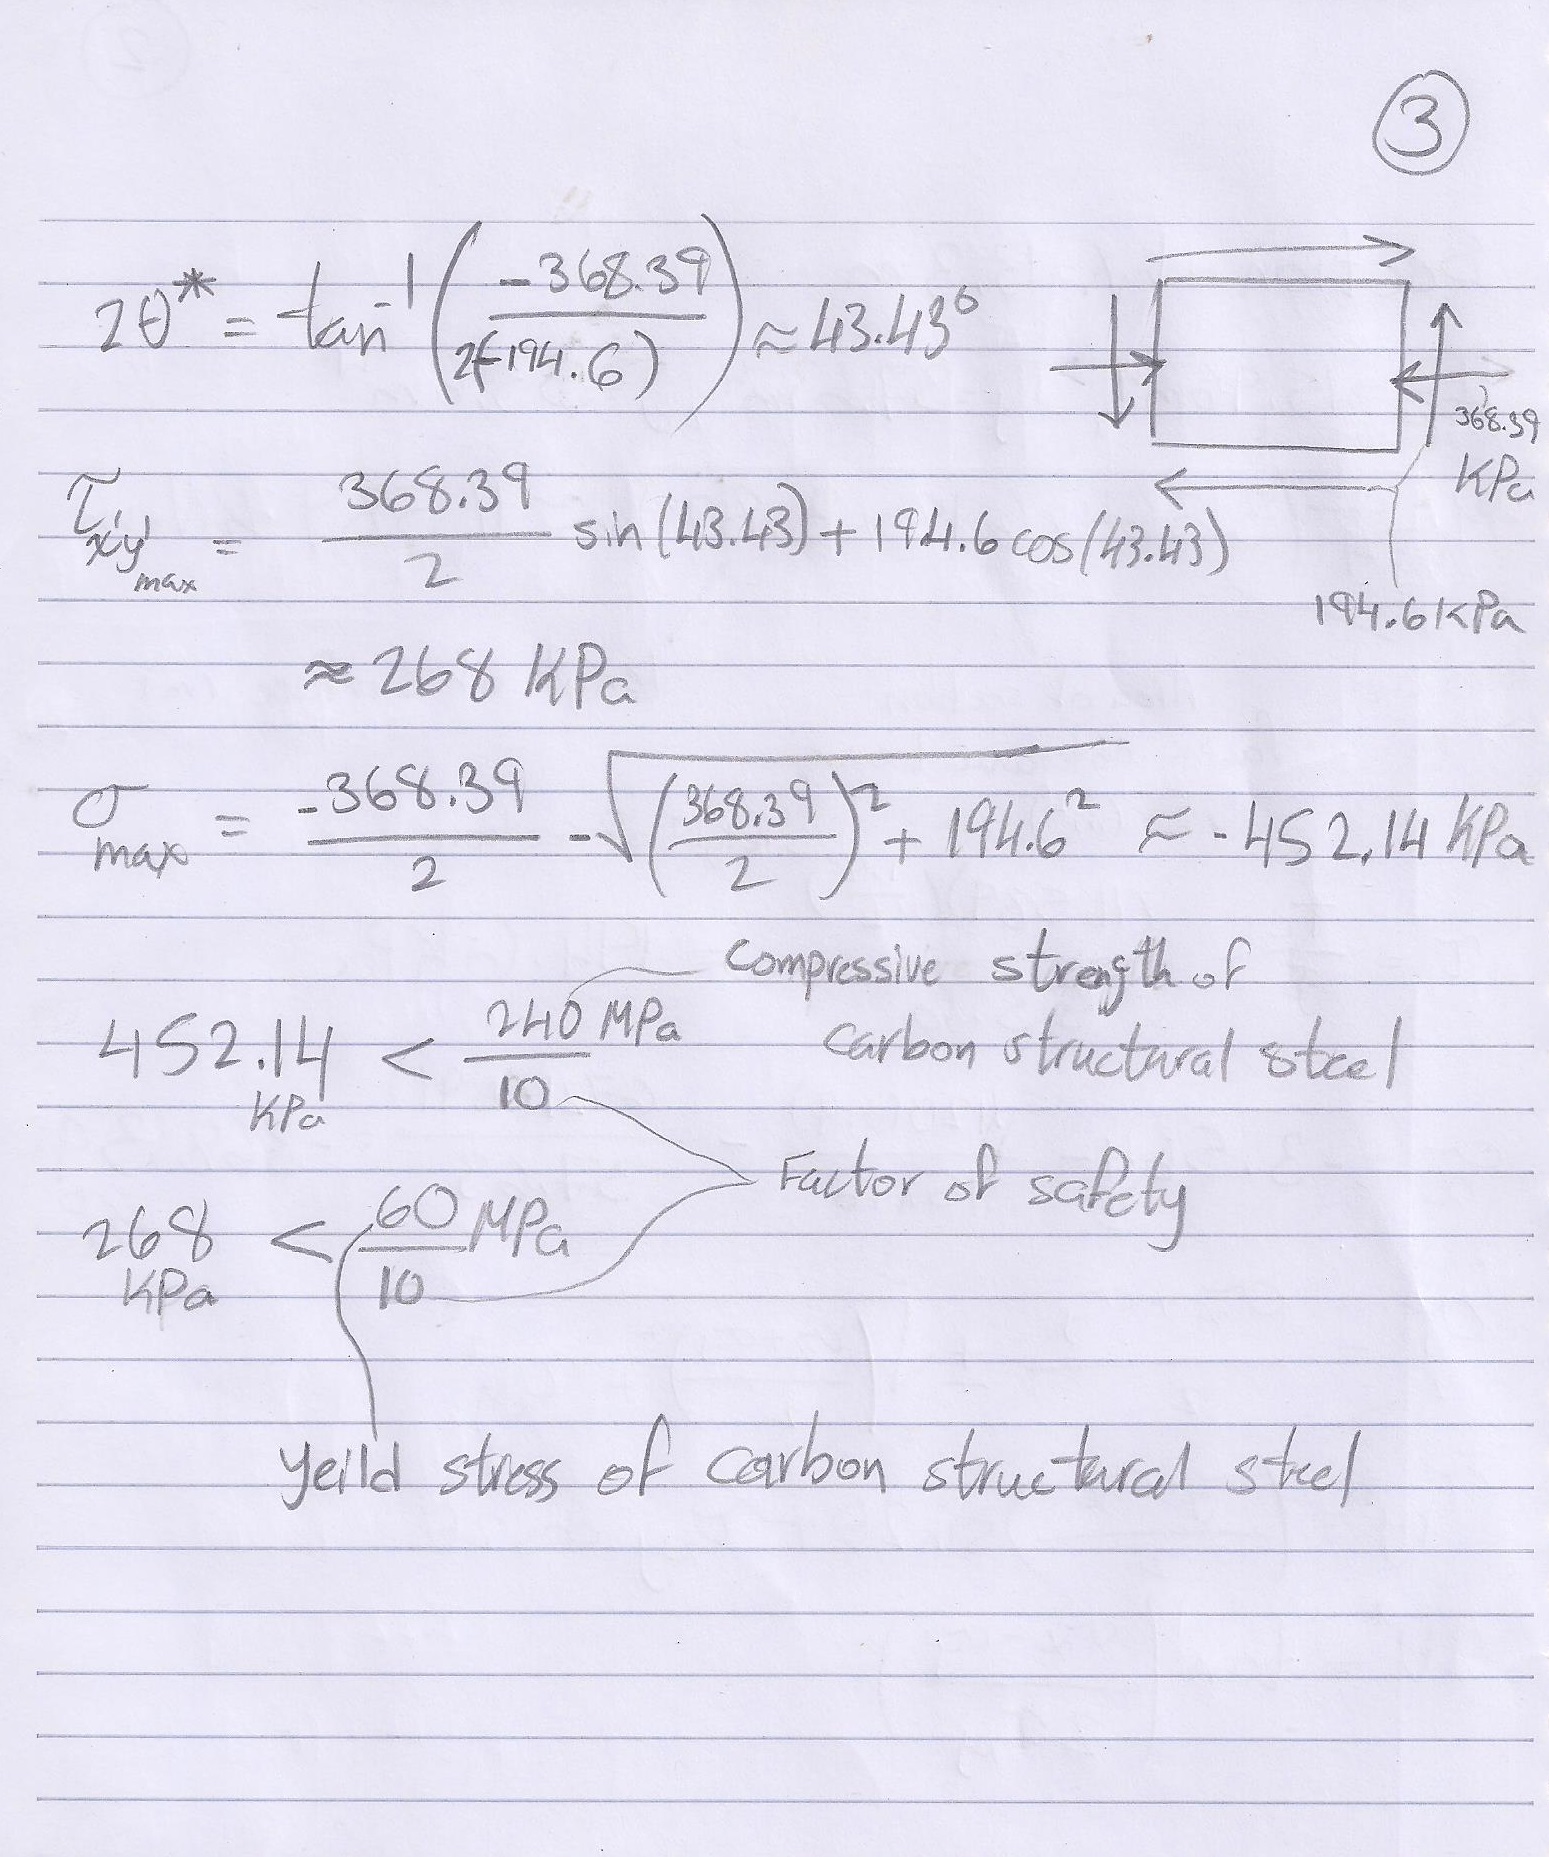 3
2θ* = tan⁻¹(-368.39 / 2(-194.6)) ≈ 43.43°
368.39
KPa
τx'y'max = 368.39/2 sin(43.43) + 194.6 cos(43.43)
194.6 KPa
≈ 268 KPa
σmax = -368.39/2 - √((368.39/2)² + 194.6²) ≈ -452.14 KPa
Compressive strength of
carbon structural steel
452.14 KPa < 240 MPa / 10
Factor of safety
268 KPa < 60 MPa / 10
Yeild stress of carbon structural steel